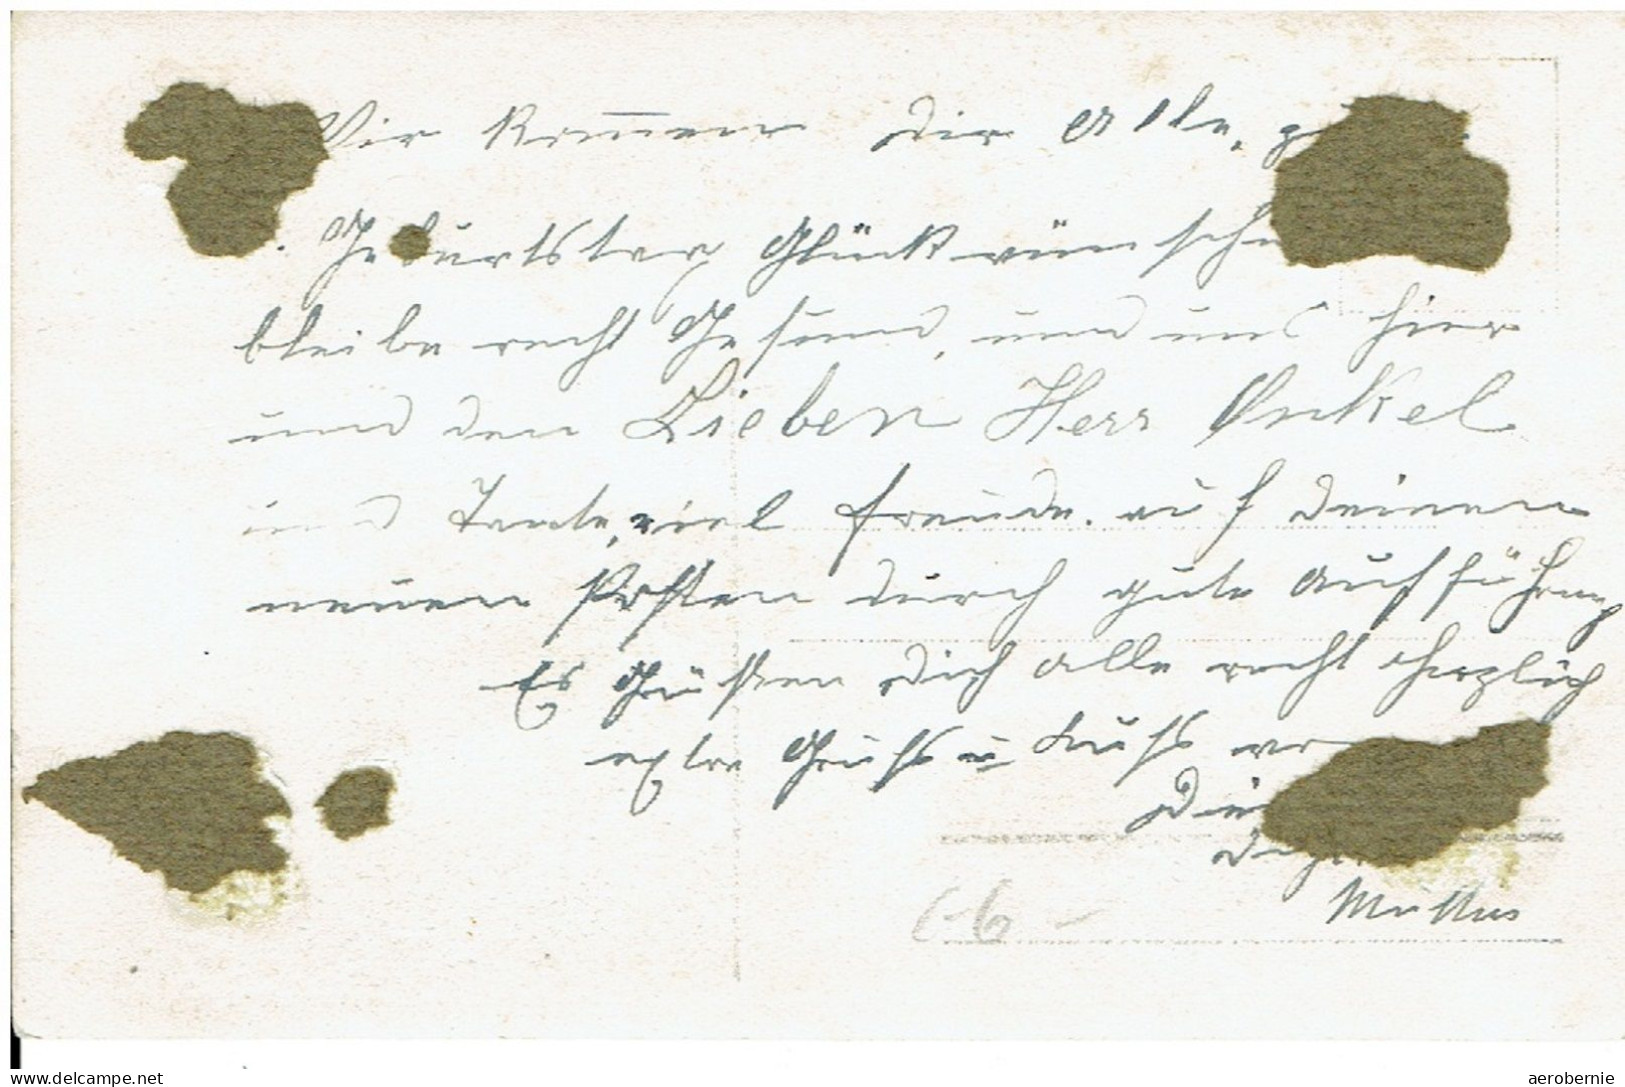 Wir kommen Dir Alle, z
Geburtstag Glückwünsche
bleibe recht Gesund, und uns hier
und den Lieben Herr Onkel
und Tante, viel freude. auf deinen
neuen Posten durch gute Aufführung
Es Grüßen Dich alle recht herzlich
extra Gruß u Kuß von
Dei
Mutter
C-6 -
www.delcampe.net
aerobernie